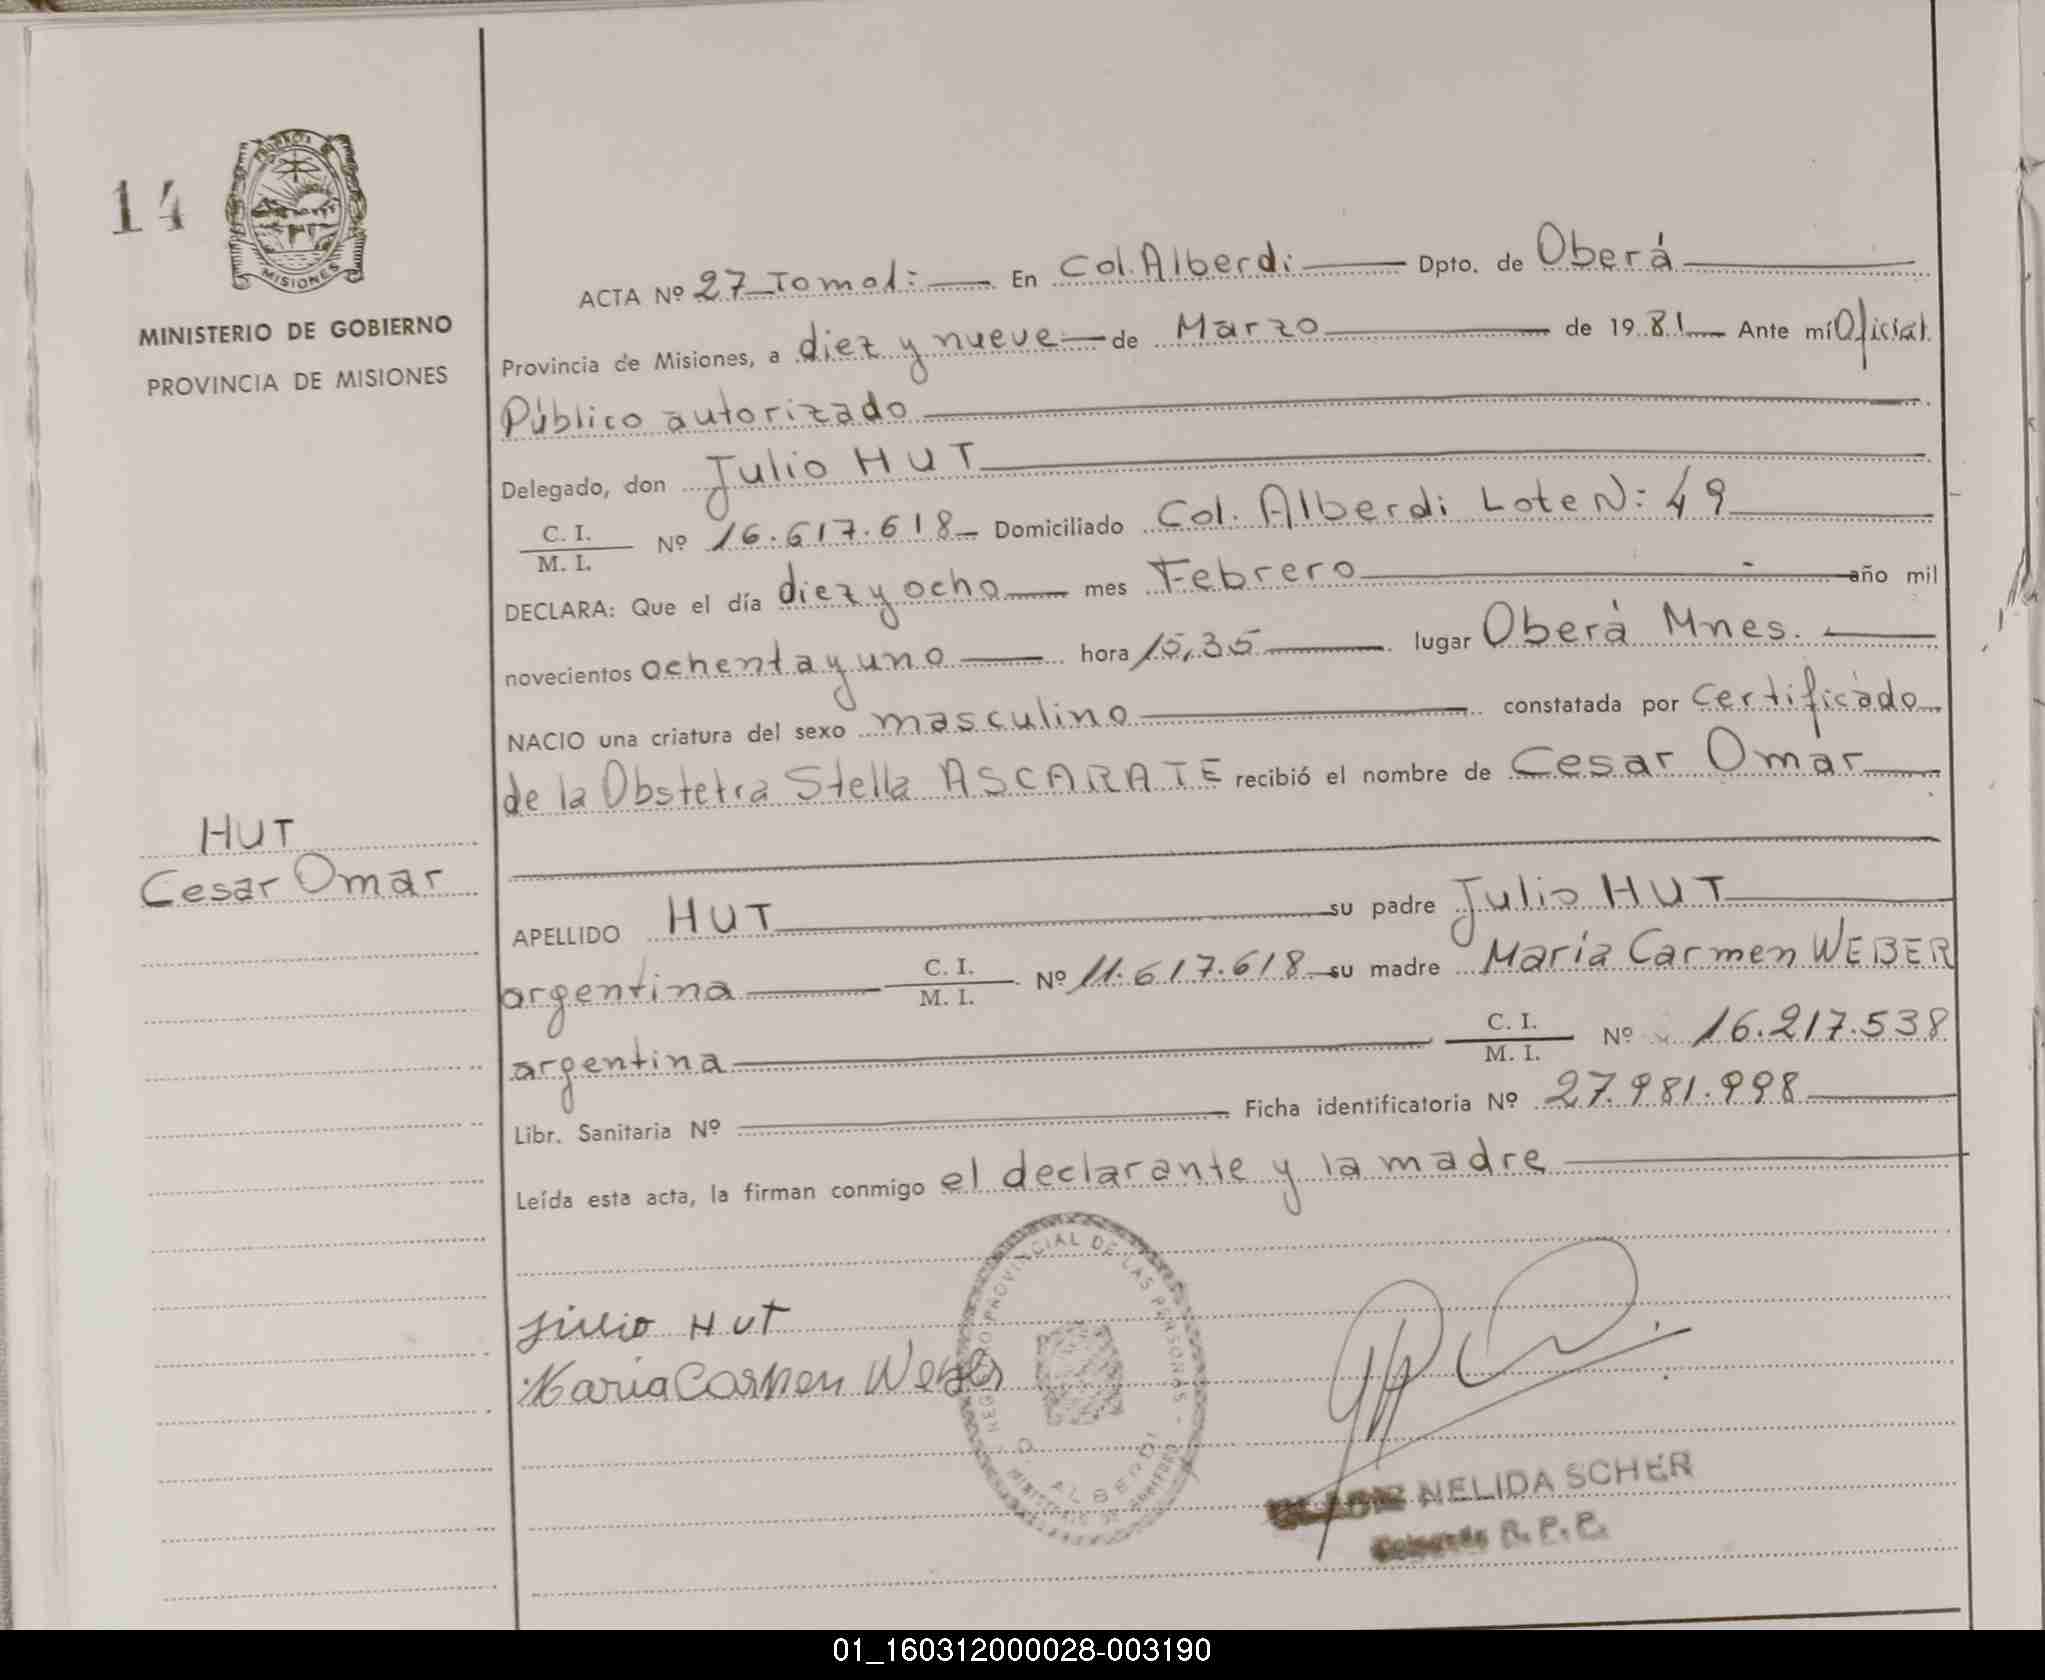 14
PROVINCIA DE
MISIONES
MINISTERIO DE GOBIERNO
PROVINCIA DE MISIONES
HUT
Cesar Omar
ACTA Nº 27 Tomo I: En Col. Alberdi Dpto. de Oberá
Provincia de Misiones, a diez y nueve de Marzo de 1981 Ante mí Oficial
Público autorizado
Delegado, don Julio HUT
C. I. / M. I. Nº 16.617.618 Domiciliado Col. Alberdi Lote N: 49
DECLARA: Que el día diez y ocho mes Febrero año mil
novecientos ochenta y uno hora 15,35 lugar Oberá Mnes.
NACIO una criatura del sexo masculino constatada por certificado
de la Obstetra Stella ASCARATE recibió el nombre de Cesar Omar
APELLIDO HUT su padre Julio HUT
argentina C. I. / M. I. Nº 11.617.618 su madre Maria Carmen WEBER
argentina C. I. / M. I. Nº 16.217.538
Libr. Sanitaria Nº Ficha identificatoria Nº 27.981.998
Leída esta acta, la firman conmigo el declarante y la madre
Julio HUT
Maria Carmen Weber
REGISTRO PROVINCIAL DE LAS PERSONAS -
ALBERDI
MINISTERIO DE GOBIERNO
NELIDA SCHER
R. P. P.
01_160312000028-003190